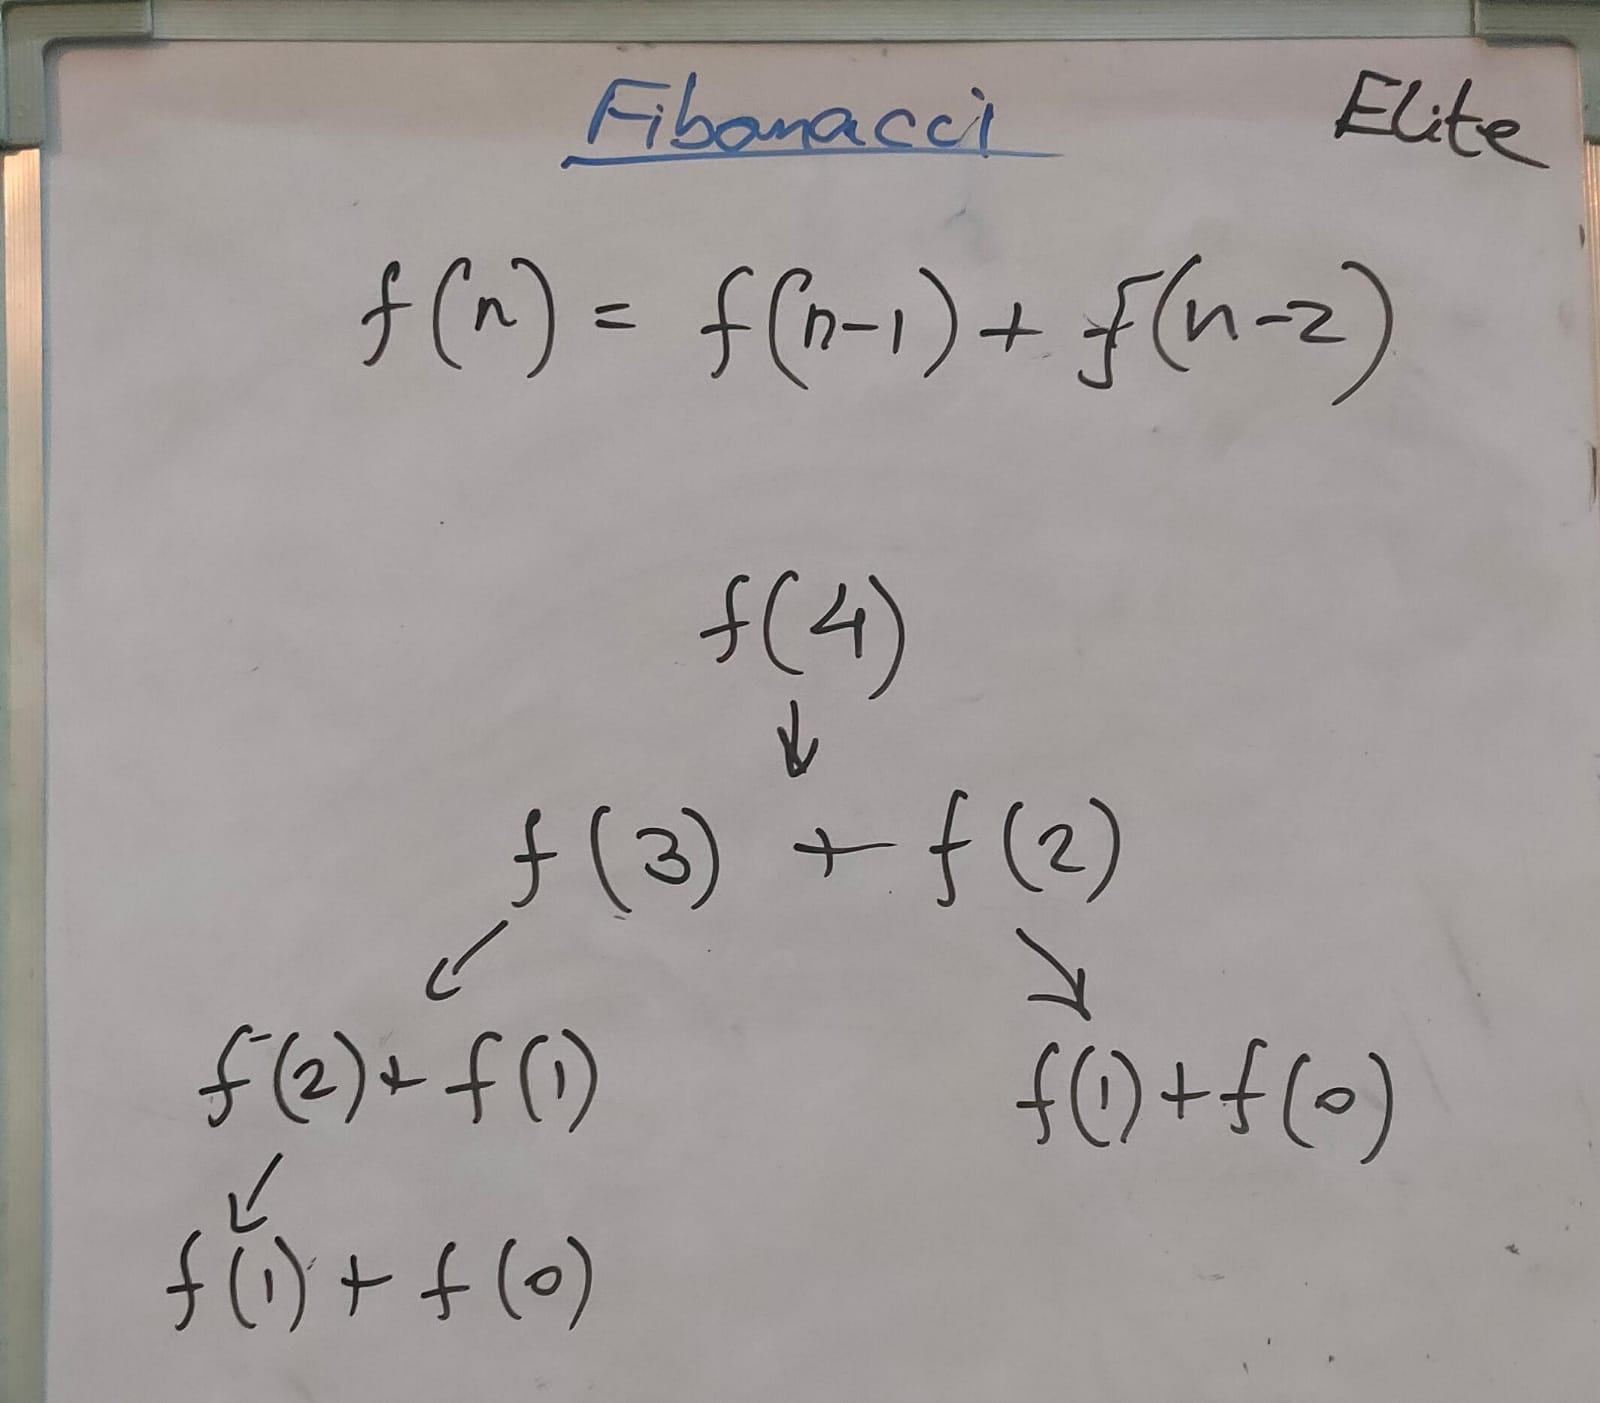 Fibonacci Elite
f(n) = f(n-1) + f(n-2)
f(4)
↓
f(3) + f(2)
↙ ↘
f(2) + f(1) f(1) + f(0)
↙
f(1) + f(0)